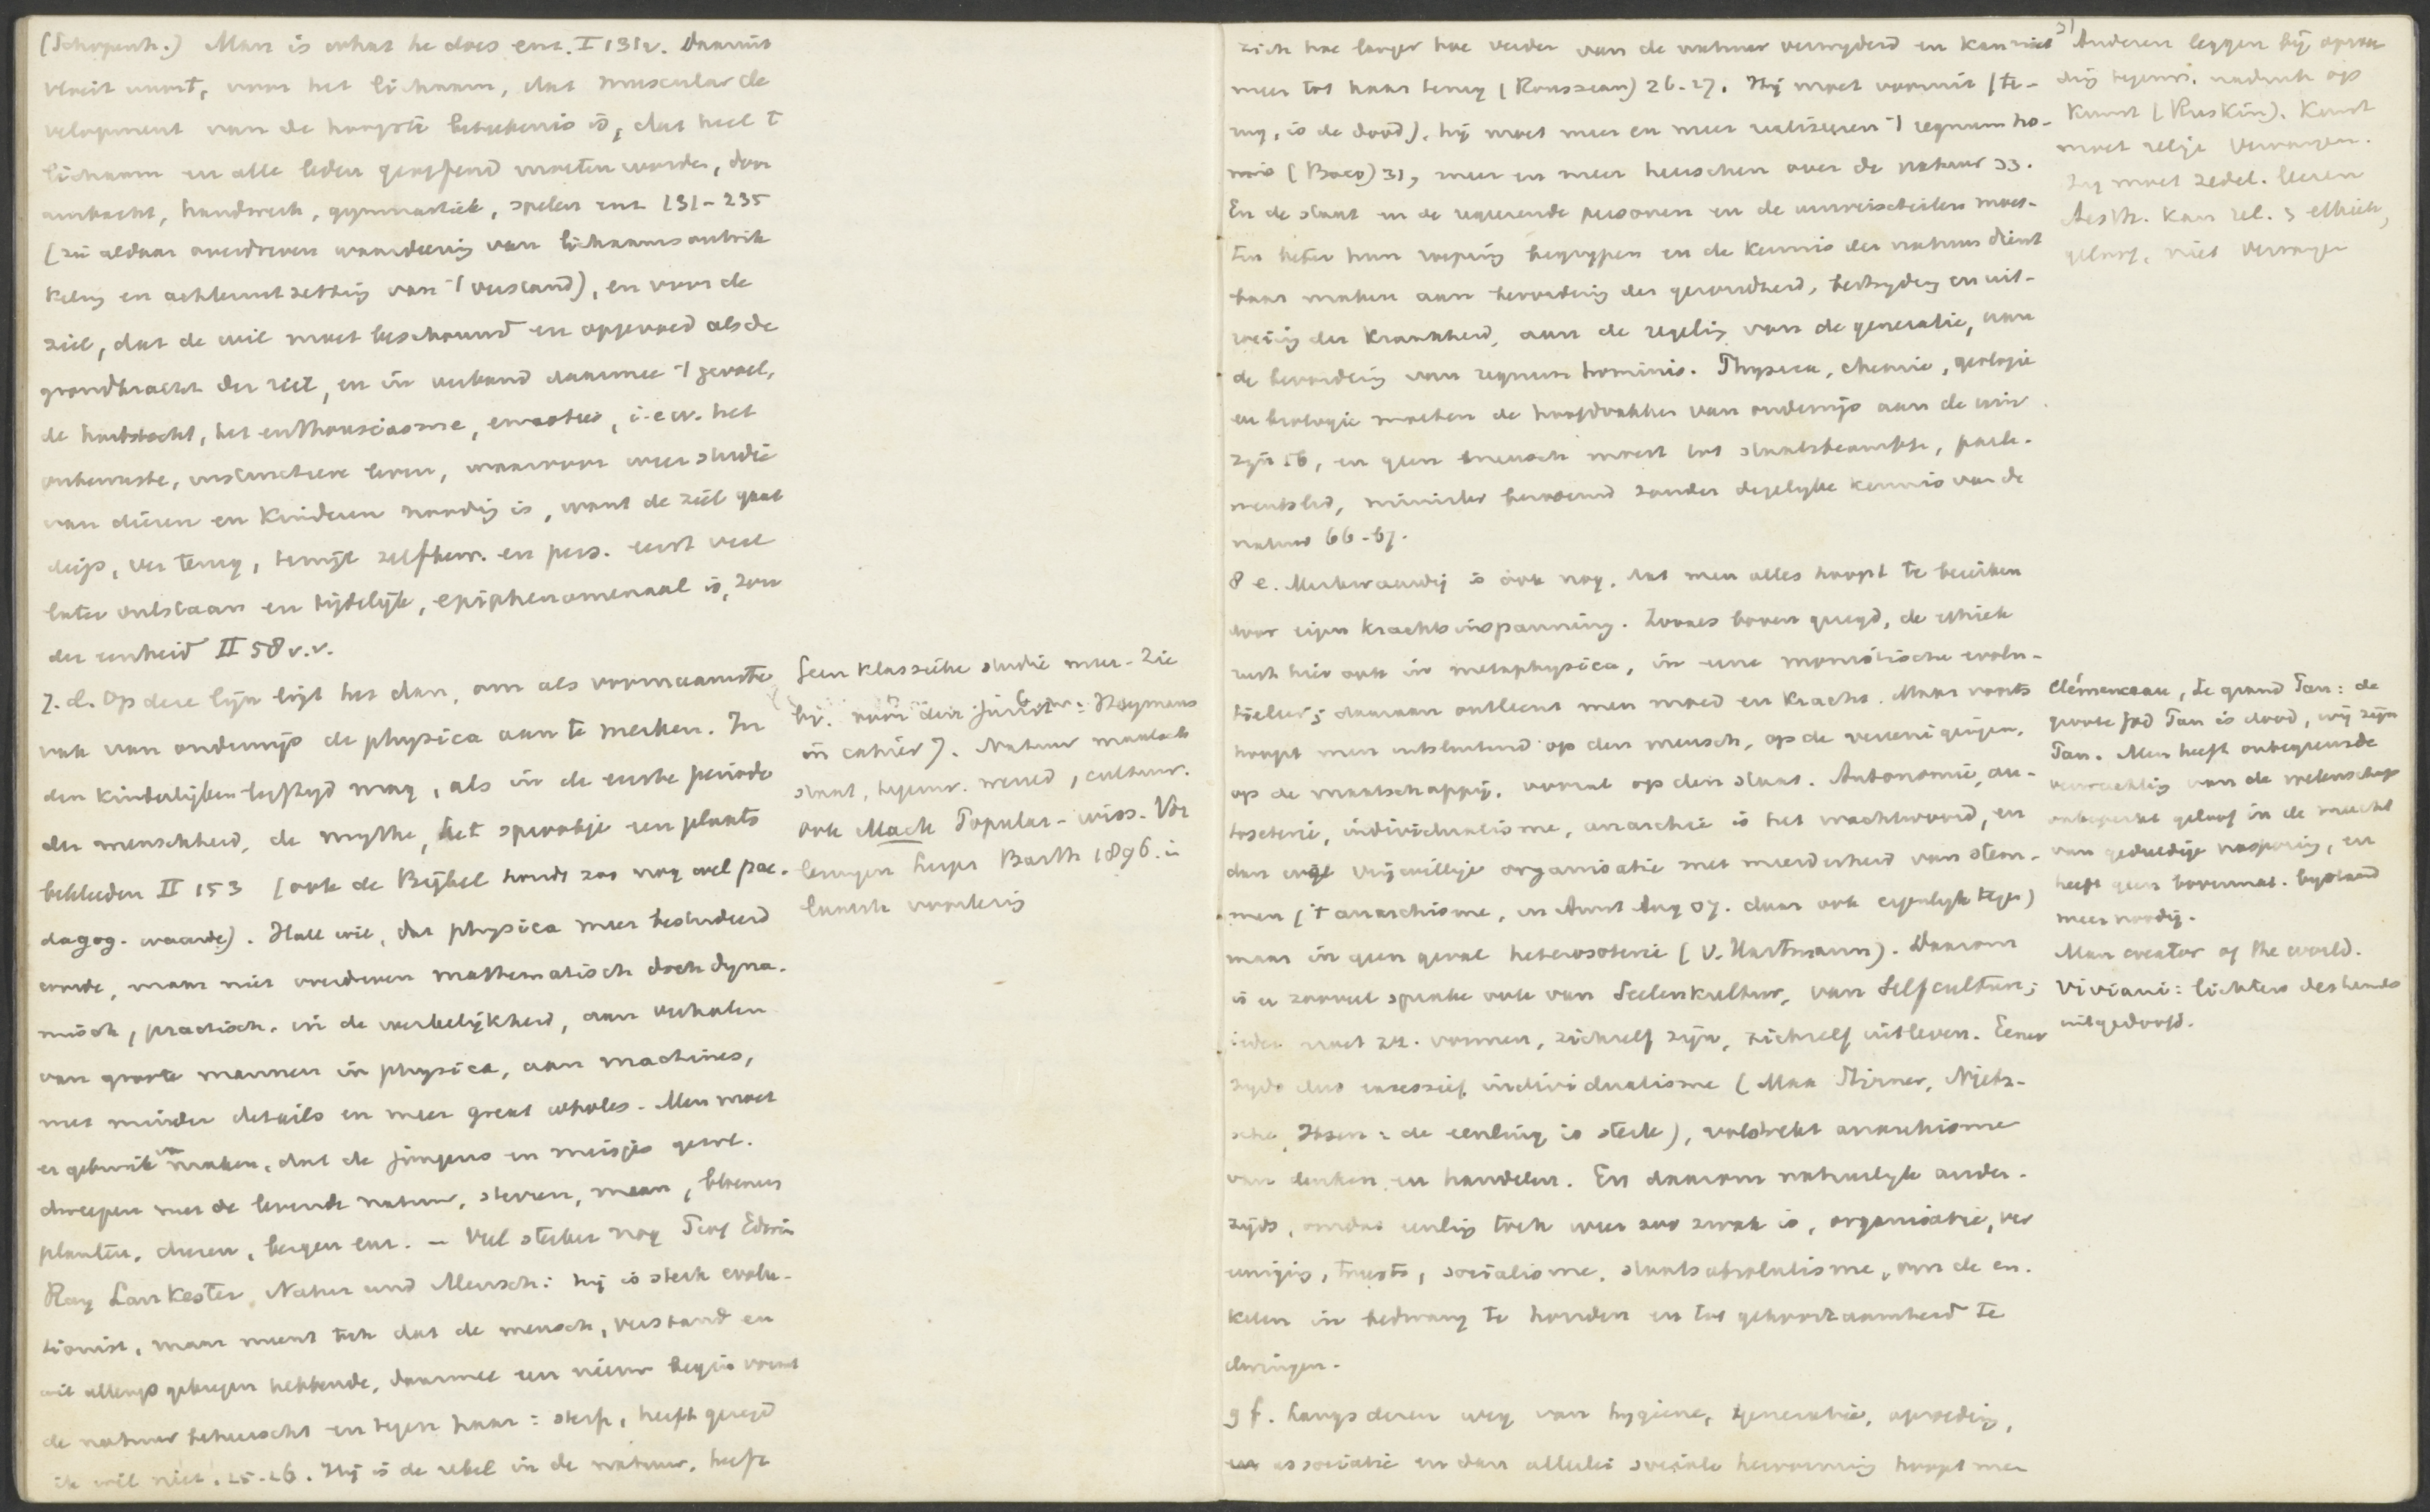 (Schopenh.) Man is what he does enz. I 131v. Daaruit
vloeit voort, voor het lichaam, dat muscular de
velopment van de hoogste beteekenis is, dat heel 't
lichaam en alle leden geoefend moeten worden, door
ambacht, handwerk, gymnastiek, spelen enz 131-235
(zie aldaar overdreven waardeering van lichaamsontwik
keling en achteruitzetting van 't verstand), en voor de
ziel, dat de wil moet beschouwd en opgevoed als de
grondkracht der ziel, en in verband daarmee 't gevoel,
de hartstocht, het enthousiasme, emoties, i.e.w. het
onbewuste, instinctieve leven, waarvoor weer studie
van dieren en kinderen noodig is, want de ziel gaat
diep, ver terug, terwijl zelfbew. en pers. eerst veel
later ontstaan en tijdelijk, epiphenomenaal is, zon
der eenheid II 58 v.v.
7. d. Op deze lijn ligt het dan, om als voornaamste
vak van onderwijs de physica aan te merken. In
den kinderlijken leeftijd mag, als in de eerste periode
der menschheid, de mythe, het sprookje een plaats
bekleeden II 153 (ook de Bijbel houdt zoo nog wel pae-
dagog. waarde). Hall wil, dat physica meer bestudeerd
worde, maar niet overdreven mathematisch doch dyna-
misch, practisch, in de werkelijkheid, aan verhalen
van groote mannen in physica, aan machines,
met minder details en meer great wholes. Men moet
er gebruik van maken, dat de jongens en meisjes
dweepen met de levende natuur, sterren, maan, bloemen
planten, dieren, bergen enz. – Veel sterker nog Prof Edwin
Ray Lankester, Natur und Mensch: hij is sterk evolu-
tionist, maar meent toch dat de mensch, verstand en
wil allengs gekregen hebbende, daarmee een nieuw begin vormt
de natuur beheerscht en tegen haar: sterf, heeft gezegd
ik wil niet. 25-26. Hij is de rebel in de natuur, heeft
Geen klassieke studie meer. Zie
bv. voor den jurist: Heymans
in cahier 7. Natuur maakt
plaats, tegenw. wereld, cultuur.
ook Mach Popular-wiss. Vor
lesungen Leipz Barth 1896. in
zich hoe langer hoe verder van de natuur verwijderd en kan niet
meer tot haar terug (Rousseau) 26-27. Hij moet vooruit (te-
rug, is de dood), hij moet meer en meer realiseeren 't regnum ho-
minis (Baco) 31, meer en meer heerschen over de natuur 33.
En de staat en de regeerende personen en de universiteiten moes-
ten beter hun roeping begrijpen en de kennis der natuur dienst
baar maken aan bevordering der gezondheid, bestrijding en uit-
roeiing der krankheid, aan de regeling van de generatie, aan
de bevordering van regnum hominis. Physica, chemie, geologie
en biologie moeten de hoofdvakken van onderwijs aan de univ.
zijn 56, en geen mensch moest tot staatsbeambte, parle-
mentslid, minister benoemd zonder degelijke kennis van de
natuur 66-67.
8 e. Merkwaardig is ook nog, dat men alles hoopt te bereiken
door eigen krachtsinspanning. Zooals boven gezegd, de ethiek
rust hier ook in metaphysica, in eene monistische evolu-
tieleer; daaraan ontleent men moed en kracht. Maar voorts
hoopt men uitsluitend op den mensch, op de vereenigingen,
op de maatschappij, vooral op den staat. Autonomie, au-
tosoterie, individualisme, anarchie is het wachtwoord, en
dan vrijwillige organisatie met meerderheid van stem-
men ('t anarchisme, in Amst Aug 07. daar ook eigenlijk tegen)
maar in geen geval heterosoterie (V. Hartmann). Daarom
is er zooveel sprake ook van Seelenkultur, van Selfculture;
ieder moet zr. vormen, zichzelf zijn, zichzelf uitleven. Eener
zijds dus excessief individualisme (Max Stirner, Nietz-
sche, Ibsen: de eenling is sterk), volstrekt anarchisme
van denken en handelen. En daarom natuurlijk ander-
zijds, omdat eenling toch weer zoo zwak is, organisatie, ver
eeniging, trusts, socialisme, staatsabsolutisme, om de en-
kelen in bedwang te houden en tot gehoorzaamheid te
dwingen.
9 f. Langs dezen weg van hygiene, generatie, opvoeding,
associatie en dan allerlei sociale hervorming hoopt men
Anderen leggen bij opvoe
ding tegenw. nadruk op
Kunst (Ruskin). Kunst
moet religie vervangen.
Zij moet zedel. leeren
Aesth. kan rel. en ethiek,
geloof, niet vervangen
Clémenceau, Le grand Pan: de
groote god Pan is dood, wij zijn
Pan. Men heeft onbegrensde
verwachting van de wetenschap
onbeperkt geloof in de macht
van geduldige nasporing, en
heeft geen bovennat. bijstand
meer noodig.
Man creator of the world.
Viviani: lichten des hemels
uitgedoofd.